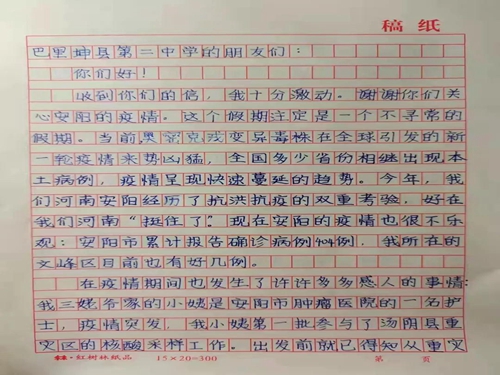 稿纸
巴里坤县第二中学的朋友们：
你们好！
收到你们的信，我十分激动。谢谢你们关
心安阳的疫情。这个假期注定是一个不寻常的
假期。当前奥密克戎变异毒株在全球引发的新
一轮疫情来势凶猛，全国多少省份相继出现本
土病例，疫情呈现快速蔓延的趋势。今年，我
们河南安阳经历了抗洪抗疫的双重考验，好在
我们河南“挺住了”！现在安阳的疫情也很不乐
观：安阳市累计报告确诊病例404例，我所在的
文峰区目前也有好几例。
在疫情期间也发生了许许多多感人的事情：
我三姥爷家的小姨是安阳市肿瘤医院的一名护
士，疫情突发，我小姨第一批参与了汤阴县重
灾区的核酸采样工作。出发前就已得知从重灾
红树林纸品 15×20=300 第 页